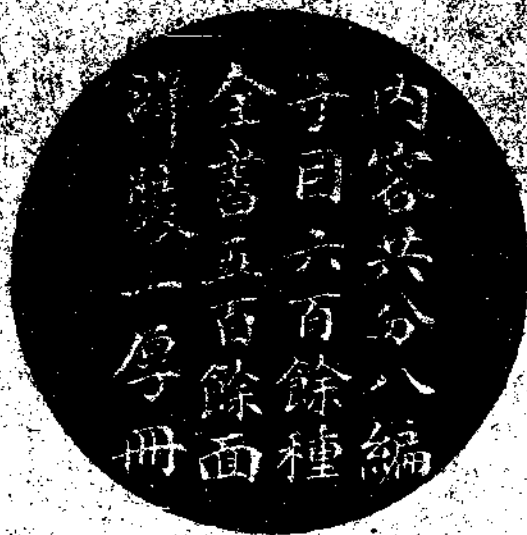 內容共分八編
子目六百餘種
全書五百餘面
洋裝一厚冊